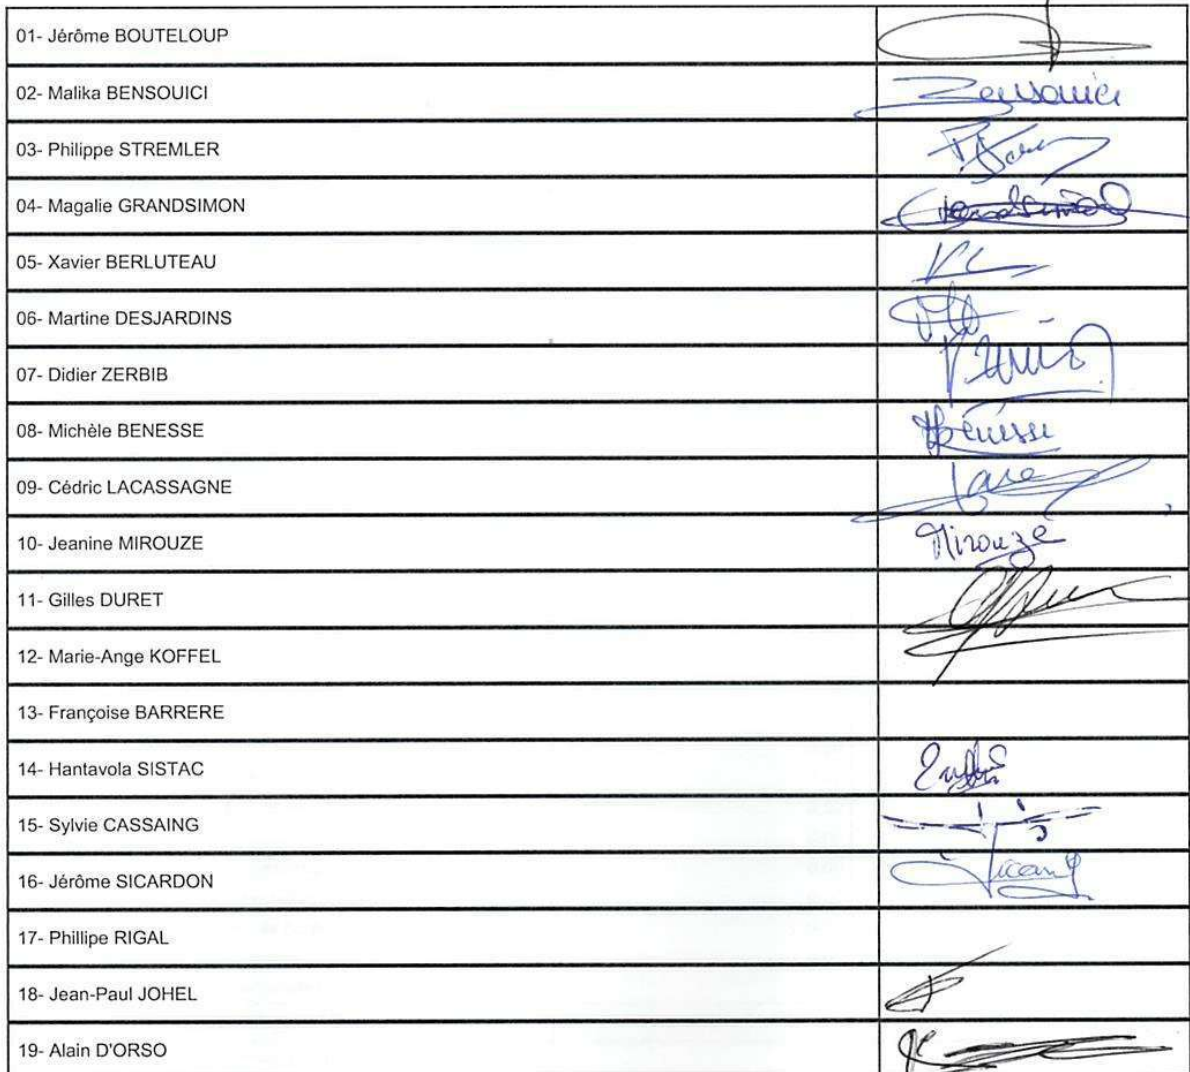 01- Jérôme BOUTELOUP
02- Malika BENSOUICI Bensouici
03- Philippe STREMLER
04- Magalie GRANDSIMON Grandsimon
05- Xavier BERLUTEAU
06- Martine DESJARDINS
07- Didier ZERBIB
08- Michèle BENESSE
09- Cédric LACASSAGNE
10- Jeanine MIROUZE Mirouze
11- Gilles DURET
12- Marie-Ange KOFFEL
13- Françoise BARRERE
14- Hantavola SISTAC
15- Sylvie CASSAING
16- Jérôme SICARDON
17- Phillipe RIGAL
18- Jean-Paul JOHEL
19- Alain D'ORSO